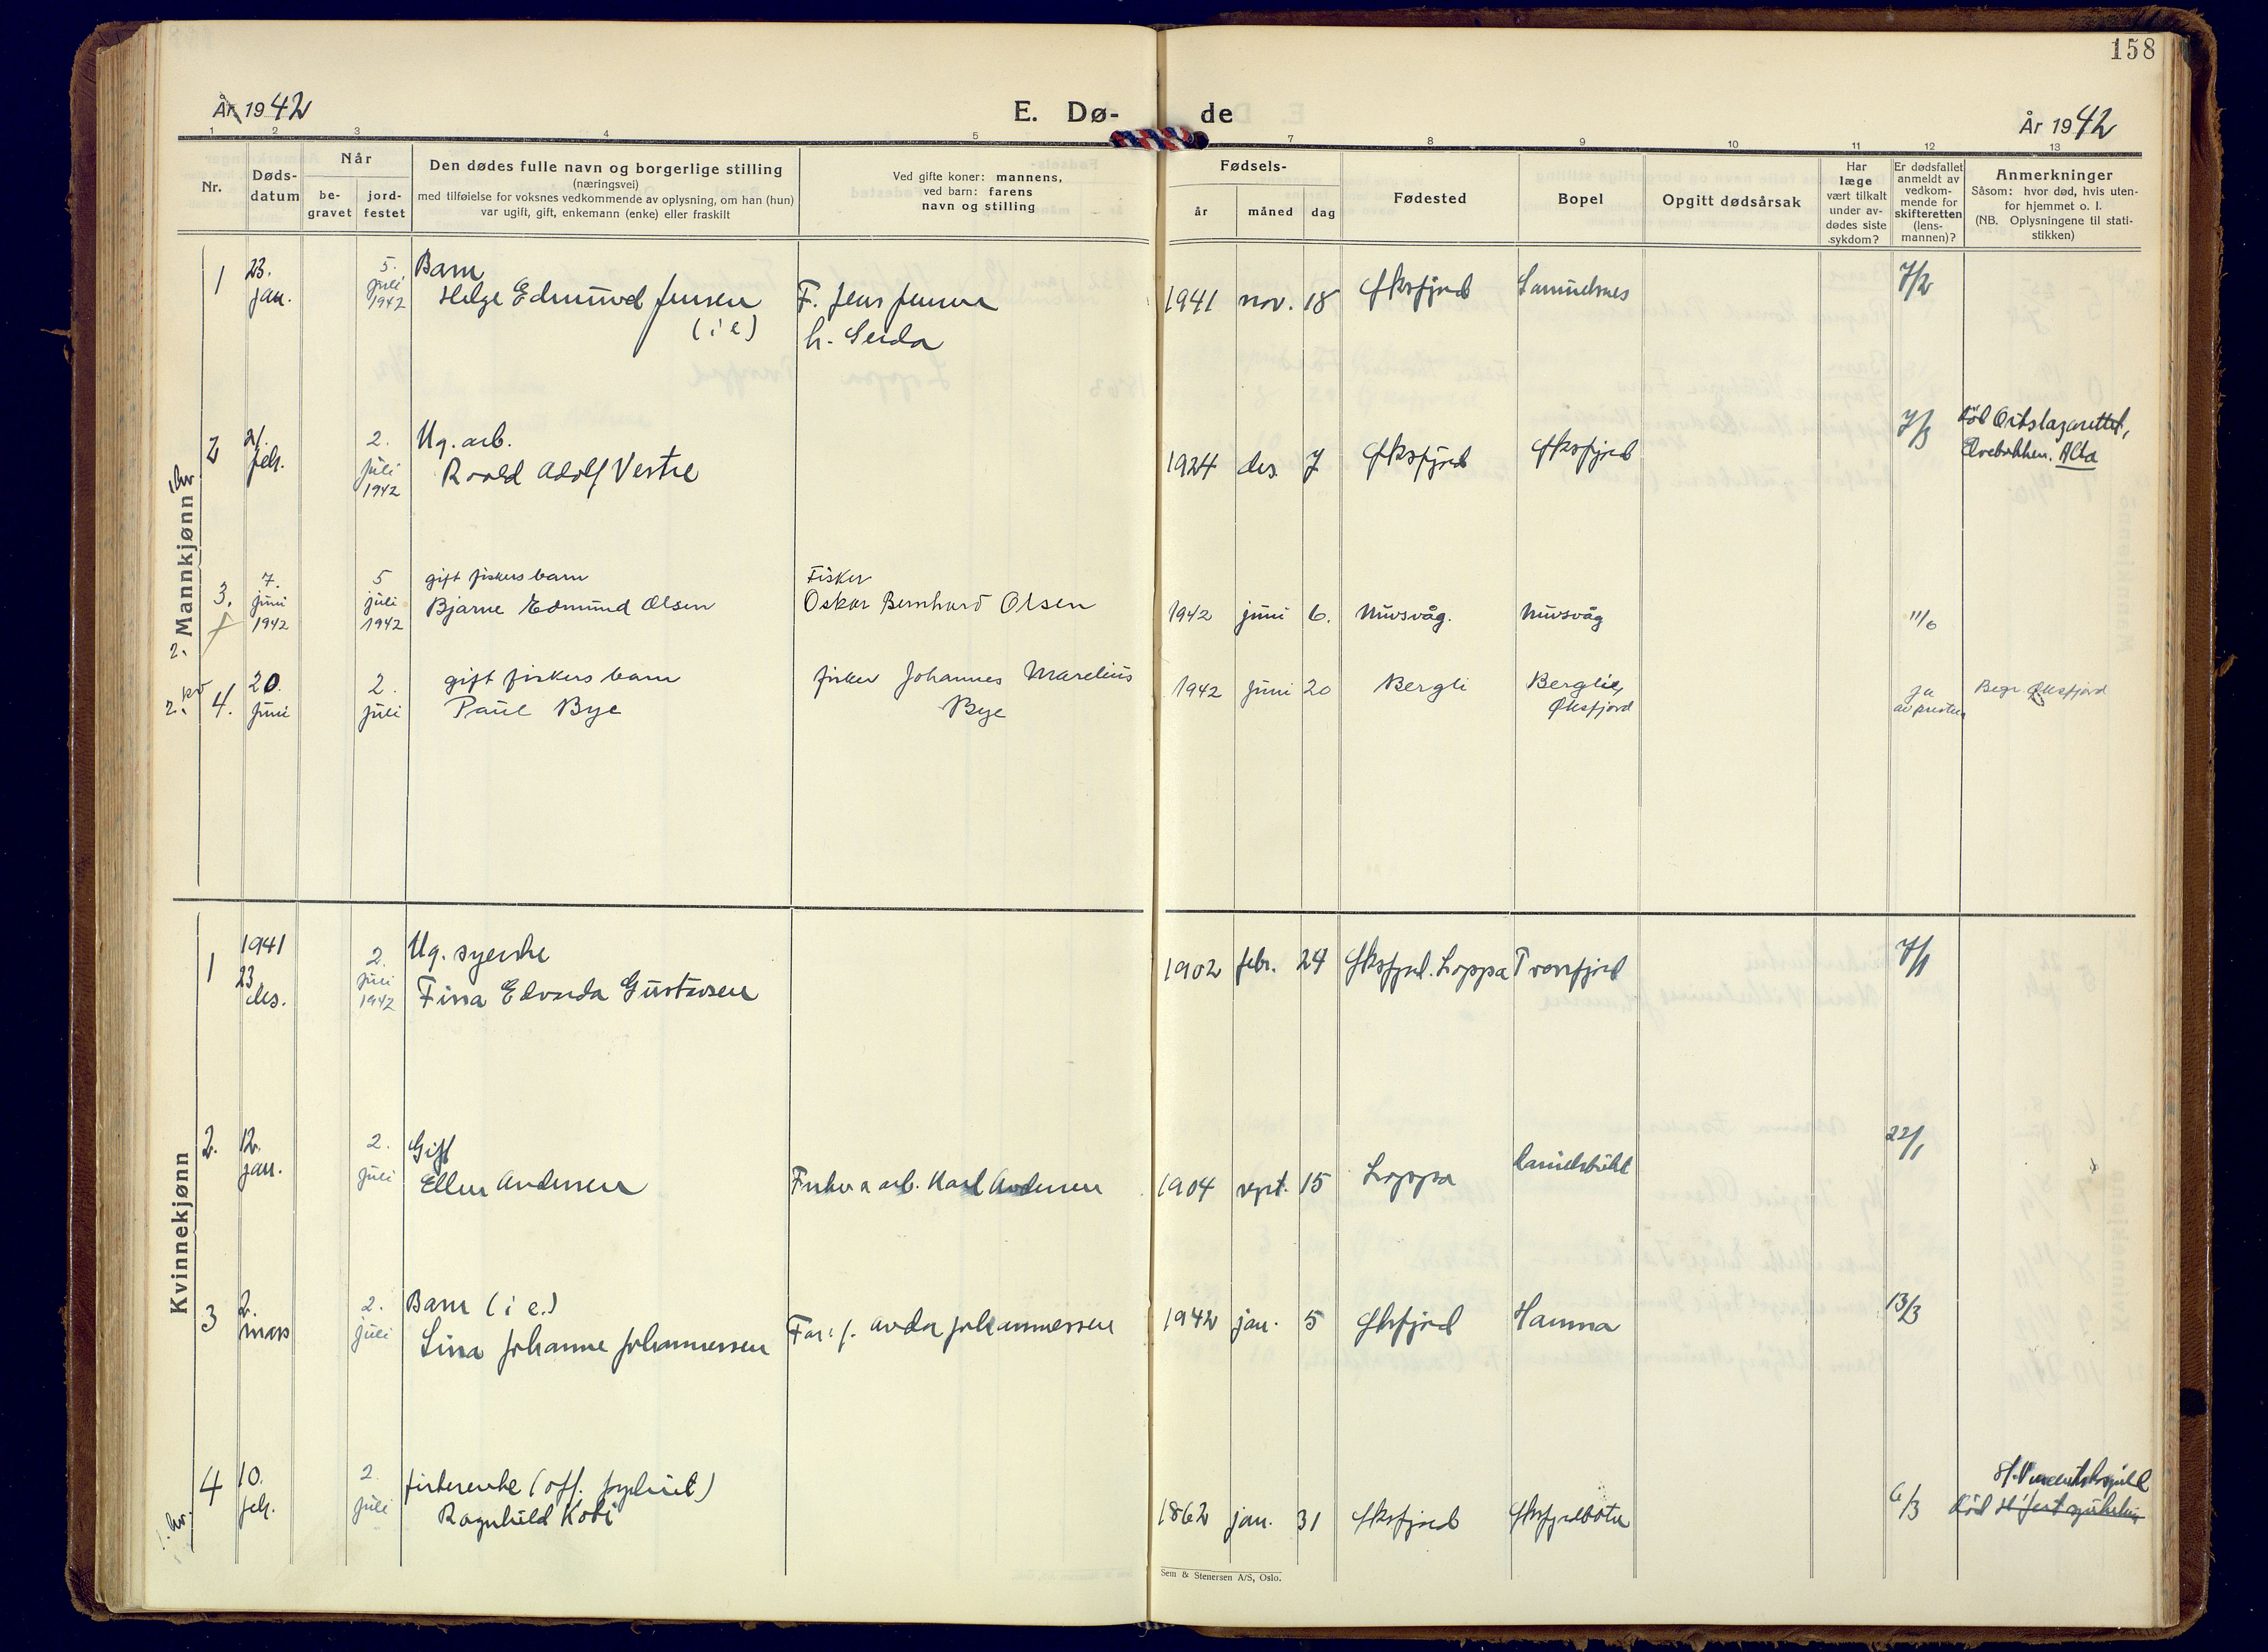 158
År 1942
E. Dø-
de
År 1942
1 2 3 4 5 7 8 9 10 11 12 13
Nr.
Døds-
datum
Når
be-
gravet
jord-
festet
Den dødes fulle navn og borgerlige stilling
(næringsvei)
med tilføielse for voksnes vedkommende av oplysning, om han (hun)
var ugift, gift, enkemann (enke) eller fraskilt
Ved gifte koner: mannens,
ved barn: farens
navn og stilling
Fødsels-
år måned dag
Fødested
Bopel
Opgitt dødsårsak
Har
læge
vært tilkalt
under av-
dødes siste
sykdom?
Er dødsfallet
anmeldt av
vedkom-
mende for
skifteretten
(lens-
mannen)?
Anmerkninger
Såsom: hvor død, hvis uten-
for hjemmet o. l.
(NB. Oplysningene til stati-
stikken)
Mannkjønn
1 23. jan. 5. juli 1942 Barn
Helge Edmund Jensen F. Jens Jensen 1941 nov. 18 Øksfjord Samuelsnes 7/2
(i e) h. Gerda
2 21. feb. 2. juli 1942 Ug. arb.
Roald Adolf Vestre 1924 des. 7 Øksfjord Øksfjord 7/3 død Ortslazarettet,
Elvebakken. Alta
3. 7. juni 1942 5 juli 1942 gift fiskers barn Fisker
Bjarne Edmund Olsen Oskar Bernhard Olsen 1942 juni 6. Nuvsvåg. Nuvsvåg 11/6
4. 20. juni 2. juli gift fiskers barn fisker Johannes Marelius 1942 juni 20 Bergli Berglie, ja Begr. Øksfjord
Paul Bye Bye Øksfjord av presten
Kvinnekjønn
1 1941 23 des. 2. juli 1942 Ug. syerske
Fina Edvarda Gustavsen 1902 febr. 24 Øksfjord. Loppa Tverrfjord 7/1
2. 12. jan. 2. juli Gift
Ellen Andersen Fisker a arb. Karl Andersen 1904 sept. 15 Loppa 22/1
3 2. mars 2. juli Barn (i e.)
Lina Johanne Johannessen Far: f. Johannessen 1942 jan. 5 Øksfjord Hamna 13/3
4 10. feb. 2. juli fiskerenke
Ragnhild Kobi 1862 jan. 31 Øksfjord Øksfjordbotn 6/3 død
1. kv.
Sem & Stenersen A/S, Oslo.